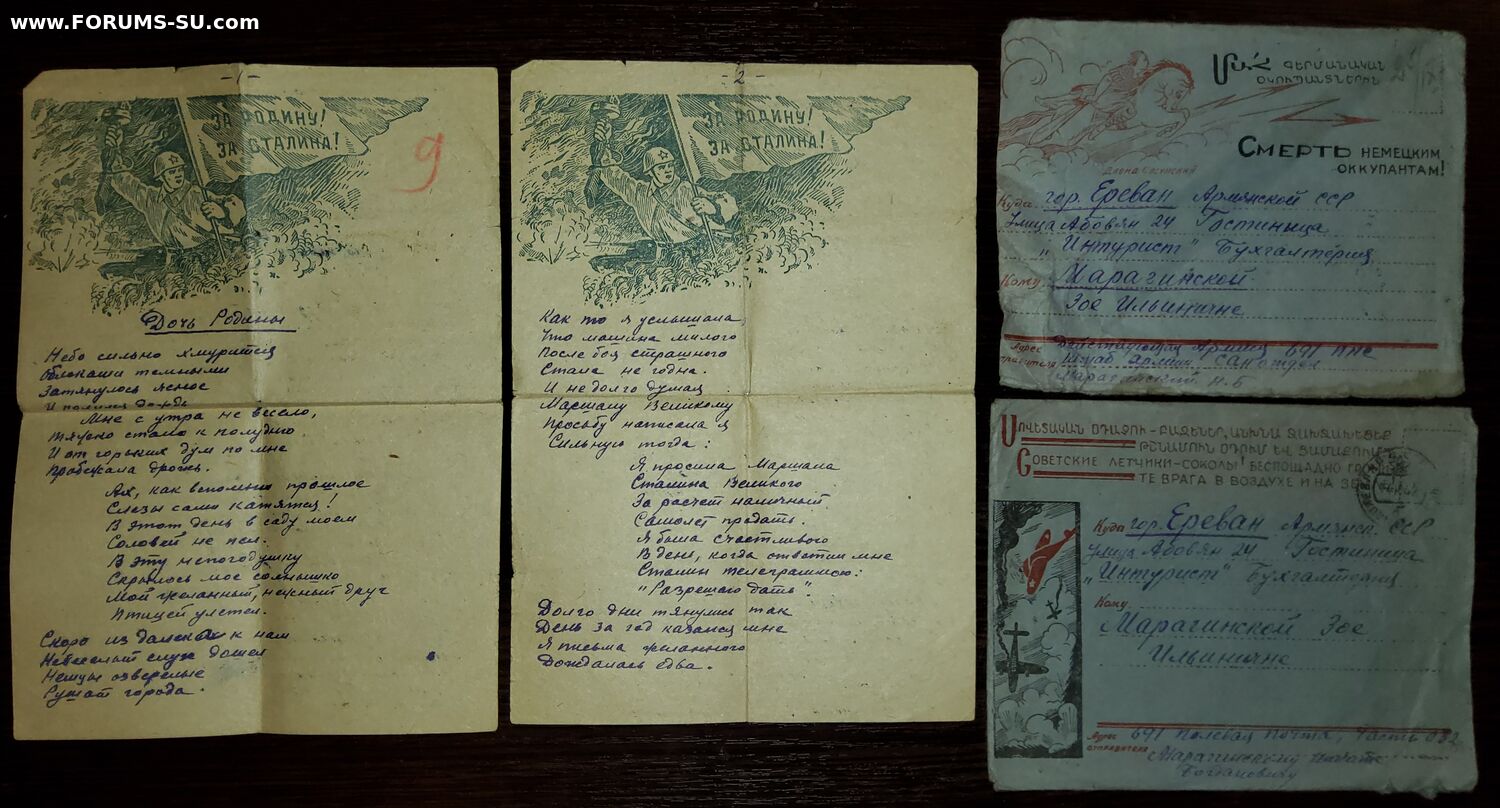 www.FORUMS-SU.com
-1-
ЗА РОДИНУ!
ЗА СТАЛИНА!
9
Дочь Родины
Небо сильно хмурится
Облаками темными
Затянулось ясное
И полился дождь
Мне с утра не весело,
Тяжко стало к полудню
И от горьких дум по мне
Пробежала дрожь.
Ах, как вспомню прошлое
Слезы сами катятся!
В этот день в саду моем
Соловей не пел.
В эту непогодушку
Скрылось мое солнышко
Мой желанный, нежный друг
Птицей улетел.
Скоро из далека к нам
Невеселый слух дошел
Немцы озверелые
Рушат города.
-2-
ЗА РОДИНУ!
ЗА СТАЛИНА!
Как то я услышала,
Что машина милого
После боя страшного
Стала не годна.
И не долго думая
Маршалу Великому
Просьбу написала я
Сильную тогда:
Я просила Маршала
Сталина Великого
За расчет наличный
Самолет продать.
Я была счастливого
В день, когда ответил мне
Сталин телеграммою:
"Разрешаю дать".
Долго дни тянулись так
День за год казался мне
Я письма желанного
Дождалась едва.
ՄԱՀ ԳԵՐՄԱՆԱԿԱՆ
ՕԿՈՒՊԱՆՏՆԵՐԻՆ
СМЕРТЬ НЕМЕЦКИМ
ОККУПАНТАМ!
Давид Сасунский
Куда гор. Ереван Армянской ССР
Улица Абовян 24 Гостиница
"Интурист" Бухгалтерия
Кому Марагинской
Зое Ильиничне
Адрес Действующая Армия 691 ППС
отправителя Штаб армии Санотдел
Марагинский Н.Б
ՍՈՎԵՏԱԿԱՆ ՕԴԱՉՈՒ-ԲԱԶԵՆԵՐ, ԱՆԽՆԱ ՋԱԽՋԱԽԵՑԵՔ
ԹՇՆԱՄՈՒՆ ՕԴՈՒՄ ԵՎ ՑԱՄԱՔՈՒՄ
СОВЕТСКИЕ ЛЕТЧИКИ-СОКОЛЫ! БЕСПОЩАДНО
ТЕ ВРАГА В ВОЗДУХЕ И НА
Куда гор. Ереван Армянск. ССР
Улица Абовян 24 Гостиница
"Интурист" Бухгалтерия
Кому
Марагинской Зое
Ильиничне
Адрес 691 полевая почта, часть
отправителя Марагинский
Богдановичу